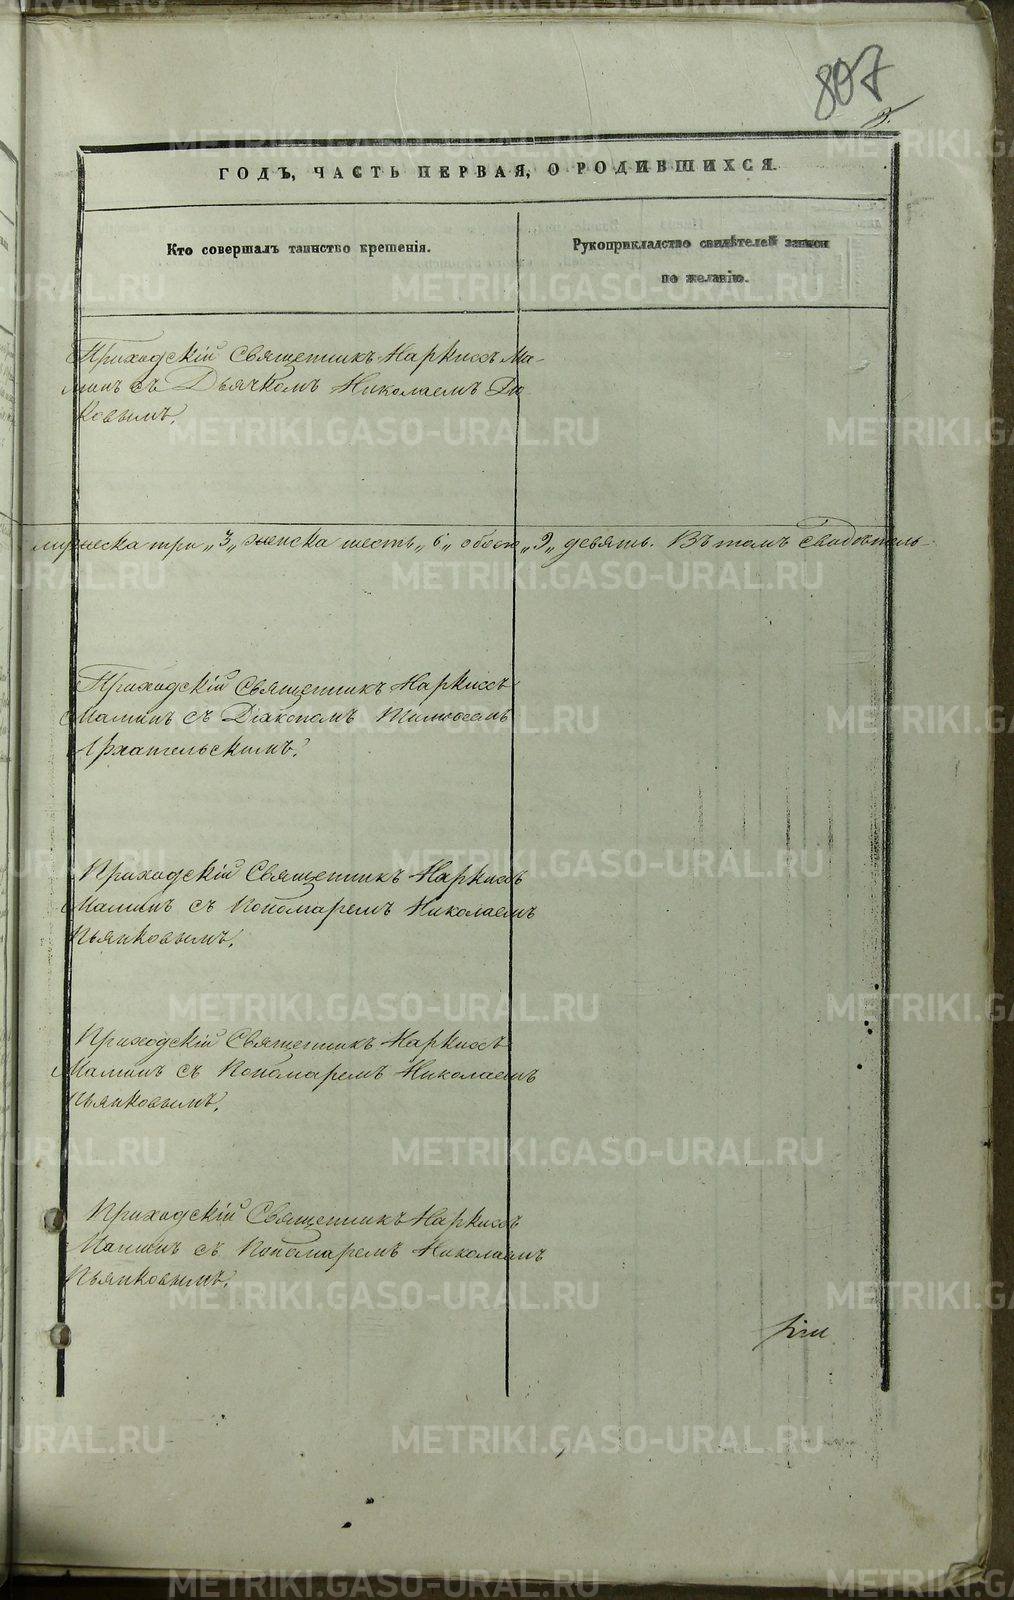 807
ГОДЪ, ЧАСТЬ ПЕРВАЯ, О РОДИВШИХСЯ.
Кто совершалъ таинство крещенія.
Рукоприкладство свидѣтелей записи
по желанію.
Приходскій Священникъ Наркиссъ Ма-
минъ съ Дьячкомъ Николаемъ
ковымъ.
мужеска три „3„ женска шесть „6„ обоего „9„ девять. Въ томъ свидѣтель-
Приходскій Священникъ Наркиссъ
Маминъ съ Діакономъ Тимофеемъ
Архангельскимъ.
Приходскій Священникъ Наркиссъ
Маминъ съ Пономаремъ Николаемъ
Пьянковымъ.
Приходскій Священникъ Наркиссъ
Маминъ съ Пономаремъ Николаемъ
Пьянковымъ.
Приходскій Священникъ Наркиссъ
Маминъ съ Пономаремъ Николаемъ
Пьянковымъ.
METRIKI.GASO-URAL.RU